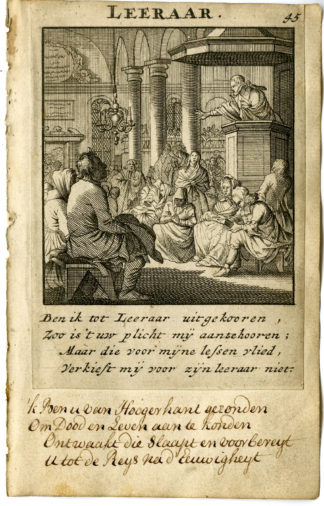 LEERAAR.
45
Ben ik tot Leeraar uitgekooren,
Zoo is't uw plicht mÿ aantehooren;
Maar die voor mÿne lessen vlied,
Verkiest mÿ voor zÿn leeraar niet.
'k Ben u van Hoogerhant gezonden
Om Dood en Leven aan te konden
Ontwaakt die Slaapt en voorbereyt
U tot de Reys na d'Eeuwigheyt